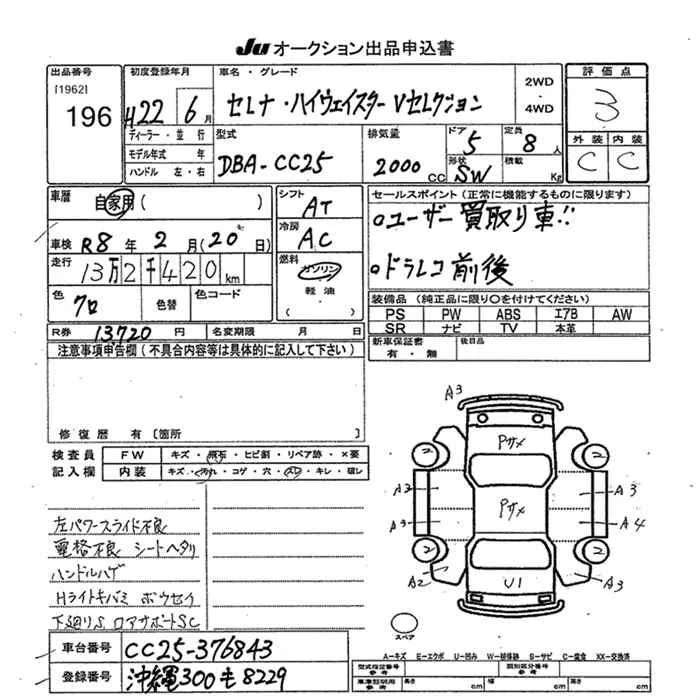 JU オークション出品申込書
出品番号
[1962]
196
初度登録年月
H22 6月
車名・グレード
セレナ・ハイウェイスター Vセレクション
2WD
・
4WD
評価点
3
外装 内装
C C
ディーラー・並行
モデル年式 年
ハンドル 左・右
型式
DBA-CC25
排気量
2000 CC
ドア
5
形状
SW
定員
8人
積載
Kg
車歴
自家用 ( )
車検 R8年 2月 (20日)
走行
13万2千420km
色
クロ
色替
色コード
シフト
AT
冷房
AC
燃料
ガソリン
軽油
( )
セールスポイント (正常に機能するものに限ります)
○ユーザー買取り車!!
○ドラレコ前後
装備品 (純正品に限り○を付けてください)
PS PW ABS エアB AW
SR ナビ TV 本革
R券 13,720円
名変期限 月 日
新車保証書
有・無
後日品
注意事項申告欄 (不具合内容等は具体的に記入して下さい)
修復歴 有 [箇所 ]
検査員
記入欄
FW キズ・飛石・ヒビ割・リペア跡・×要
内装 キズ・汚れ・コゲ・穴・スレ・キレ・破レ
左パワースライド不良
電格不良 シートヘタリ
ハンドルハゲ
Hライトキバミ ボウセイ
下廻りS ロアサポートSC
A3
Pサメ
2 2
A2 A3
Pサメ
A3 A4
2 2
A2 U1 A3
スペア
A-キズ E-エクボ U-凹み W-補修跡 S-サビ C-腐食 XX-交換済
車台番号 CC25-376843
登録番号 沖縄300も8229
型式指定番号
参考
類別区分番号
参考
車車証明用
参考
長さ cm 幅 cm 高さ cm